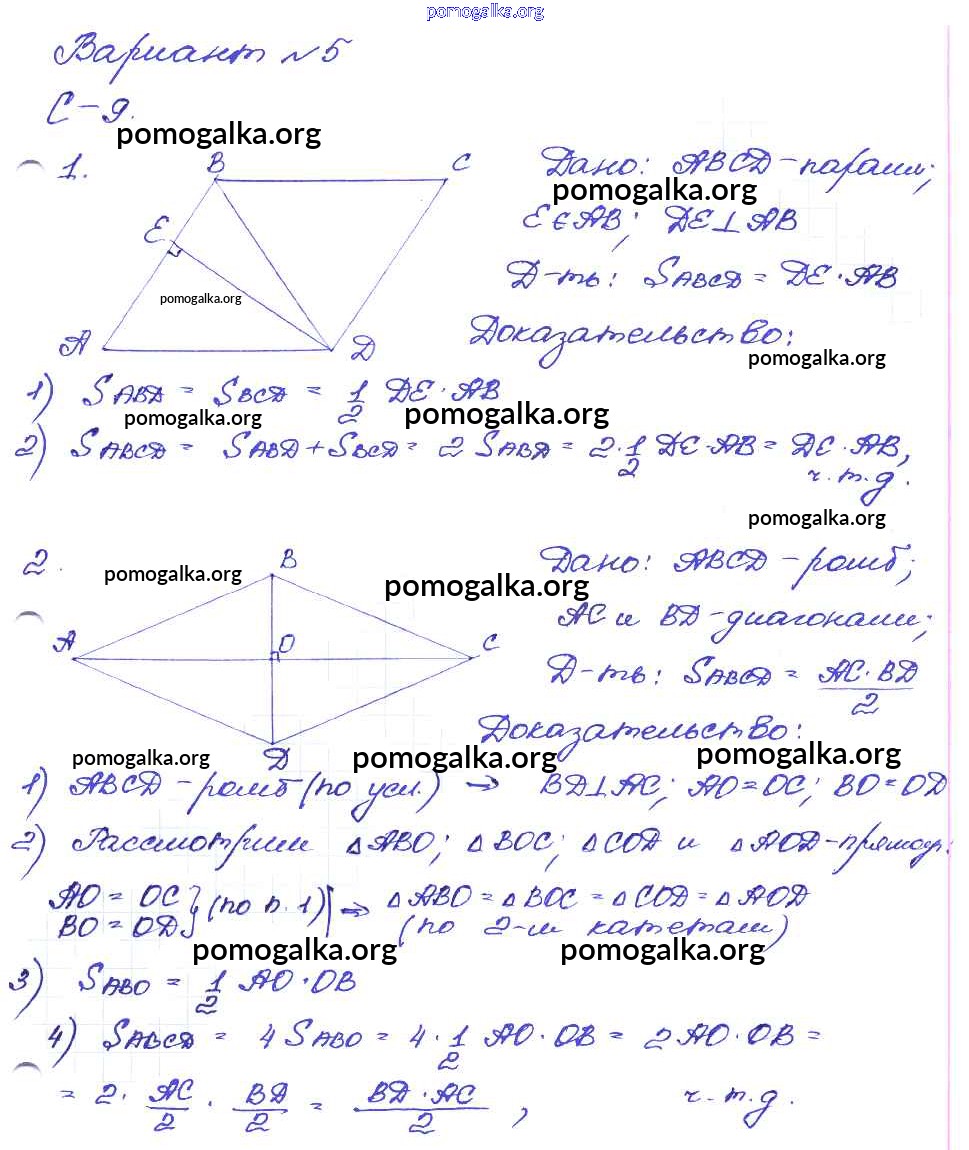 pomogalka.org
Вариант №5
С-9.
pomogalka.org
1.
B C
Дано: ABCD-парал.;
pomogalka.org
E
E∈AB; DE⊥AB
pomogalka.org
Д-ть: SABCD = DE·AB
A D
Доказательство:
pomogalka.org
1) SABD = SBCD = 1/2 DE·AB
pomogalka.org pomogalka.org
2) SABCD = SABD + SBCD = 2 SABD = 2·1/2 DE·AB = DE·AB,
ч.т.д.
pomogalka.org
2.
B
Дано: ABCD-ромб;
pomogalka.org pomogalka.org
AC и BD-диагонали;
A O C
Д-ть: SABCD = AC·BD/2
D
Доказательство:
pomogalka.org pomogalka.org pomogalka.org
1) ABCD-ромб (по усл.) → BD⊥AC; AO=OC; BO=OD
2) Рассмотрим △ABO; △BOC; △COD и △AOD-прямоуг.
AO = OC } (по п.1) | ⇒ △ABO = △BOC = △COD = △AOD
BO = OD } (по 2-м катетам)
pomogalka.org pomogalka.org
3) SABO = 1/2 AO·OB
4) SABCD = 4 SABO = 4·1/2 AO·OB = 2AO·OB =
= 2·AC/2·BD/2 = BD·AC/2, ч.т.д.